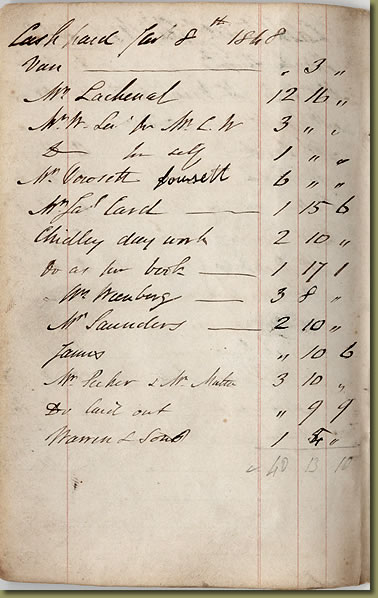 Cash paid Jan 8th 1848
Van " 3 "
Mr Lachenal 12 16 "
Mr W Lee for Mr C. W 3 " "
Do for self 1 " "
Mr Dowsett Dowsett 6 " "
Mr Jas Card 1 15 6
Chidley day work 2 10 "
Do as per book 1 17 1
Mr Wienberg 3 8 "
Mr Saunders 2 10 "
James " 10 6
Mr Peeher & Mr 3 10 "
Do laid out " 9 9
Warren & Sons 1 4 "
40 13 10